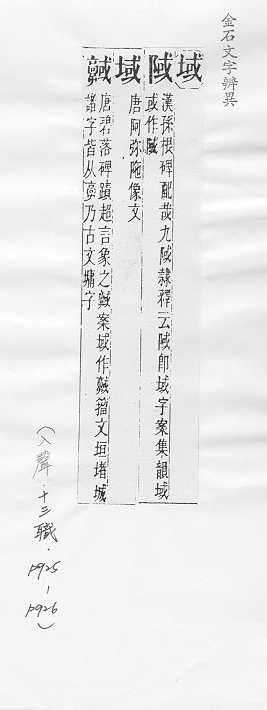 金石文字辨異
域
𨹝 漢孫根碑配哉九𨹝隸釋云𨹝即域字案集韻域
或作𨹝
域 唐阿弥陁像文
唐碧落碑蹟超言象之䧕案域作䧕籀文垣堵城
諸字皆从𩫖乃古文墉字
(入聲.十三職.P925-P926)